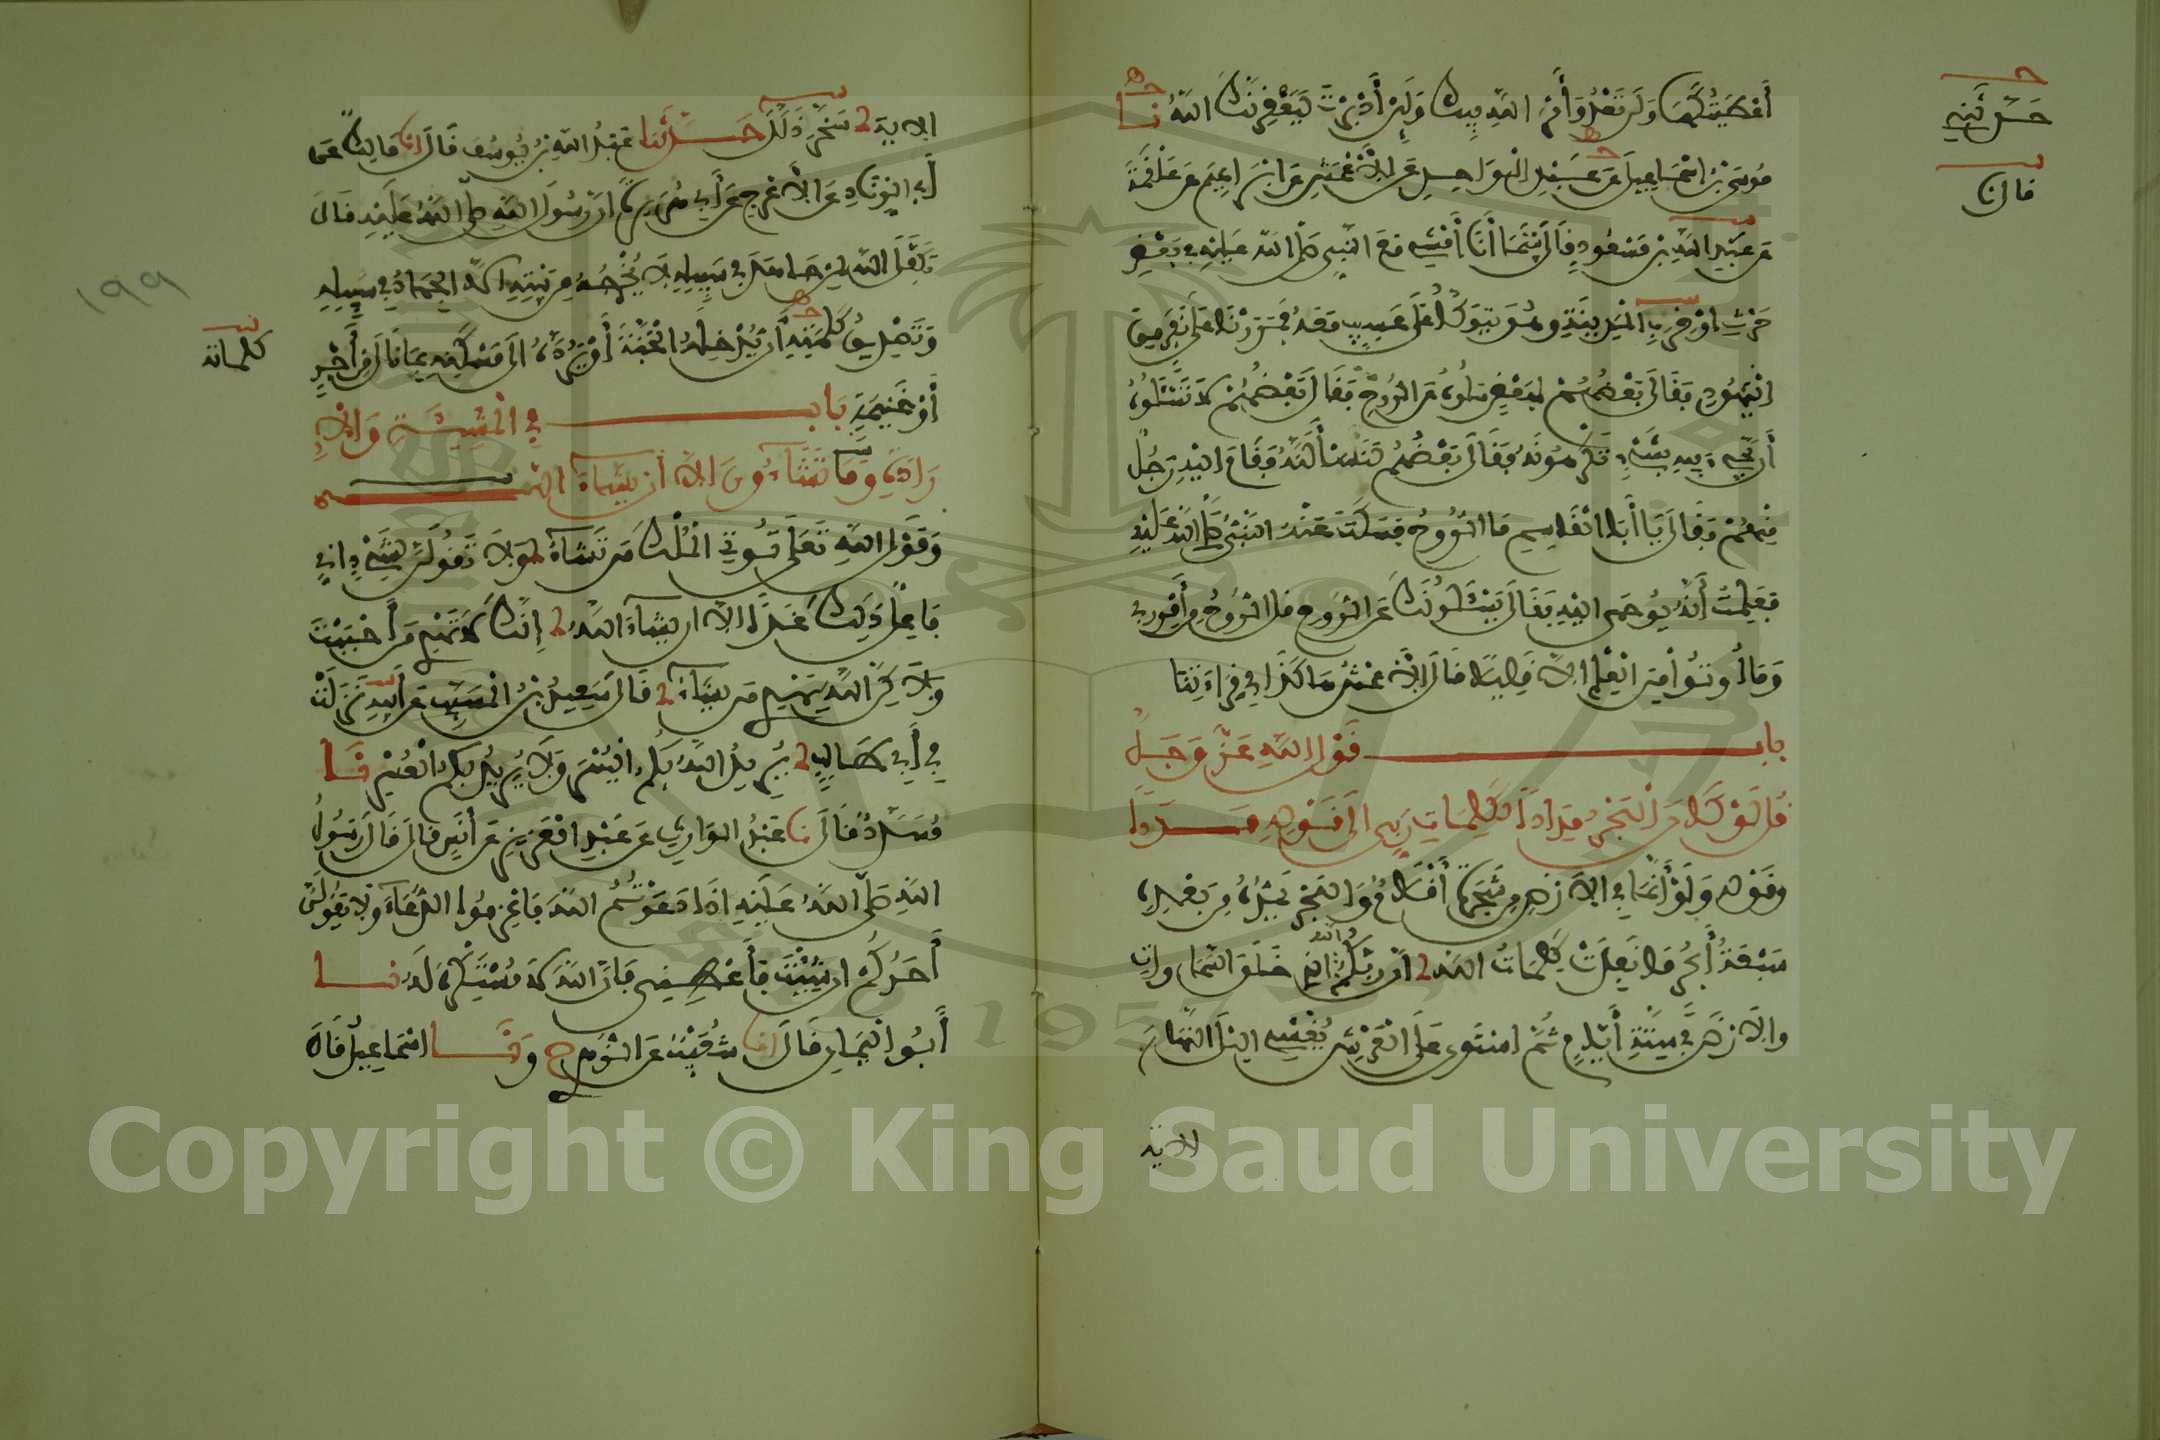 أعطيتكها ولن تعدو أمر الله فيك ولين أدبرت ليعقرنك الله نا
موسى بن إسماعيل عن عبد الواحد عن الأعمش عن إبراهيم عن علقمة
عن عبد الله بن مسعود قال بينما أنا أمشي مع النبي صلى الله عليه في بعض
حرث أو خرب المدينة وهو يتوكأ على عسيب معه فمررنا على نفر من
اليهود فقال بعضهم لبعض سلوه عن الروح فقال بعضهم لا تسئلوه
أن يجيء فيه بشيء تكرهونه فقال بعضهم لنسألنه فقام إليه رجل
منهم فقال يا أبا القاسم ما الروح فسكت عنه النبي صلى الله عليه
فعلمت أنه يوحى إليه فقال يسئلونك عن الروح قل الروح من أمر ربي
وما أوتوا من العلم إلا قليلا قال الأعمش هاكذا في قراءتنا
باب قول الله عز وجل
قل لو كان البحر مدادا لكلمات ربي إلى قوله مددا
وقوله ولو أنما في الأرض من شجرة أقلام والبحر يمده من بعده
سبعة أبحر ما نفدت كلمات الله إن ربكم الله الذي خلق السماوات
والأرض في ستة أيام ثم استوى على العرش يغشي الليل النهار
الاية
حدثني
قال نا
الاية سخر ذلل حدثنا عبد الله بن يوسف قال انا مالك عن
أبي الزناد عن الأعرج عن أبي هريرة أن رسول الله صلى الله عليه قال
تكفل الله لمن جاهد في سبيله لا يخرجه من بيته إلا الجهاد في سبيله
وتصديق كلمته أن يدخله الجنة أو يرده إلى مسكنه بما نال من أجر
أو غنيمة باب في المشيئة والإ
رادة وما تشاءون إلا أن يشاء الله
وقول الله تعلى توتي الملك من تشاء ولا تقولن لشيء إني
فاعل ذلك غدا إلا أن يشاء الله إنك لا تهدي من أحببت
ولكن الله يهدي من يشاء قال سعيد بن المسيب عن أبيه نزلت
في أبي طالب يريد الله بكم اليسر ولا يريد بكم العسر نا
مسدد قال نا عبد الوارث عن عبد العزيز عن أنس قال قال رسول
الله صلى الله عليه إذا دعوتم الله فاعزموا الدعاء ولا يقولن
أحدكم إن شئت فأعطني فإن الله لا مستكره له نا
أبو اليمان قال انا شعيب عن الزهري ح ونا إسماعيل قال
كلماته
١٩٩
Copyright © King Saud University
1957